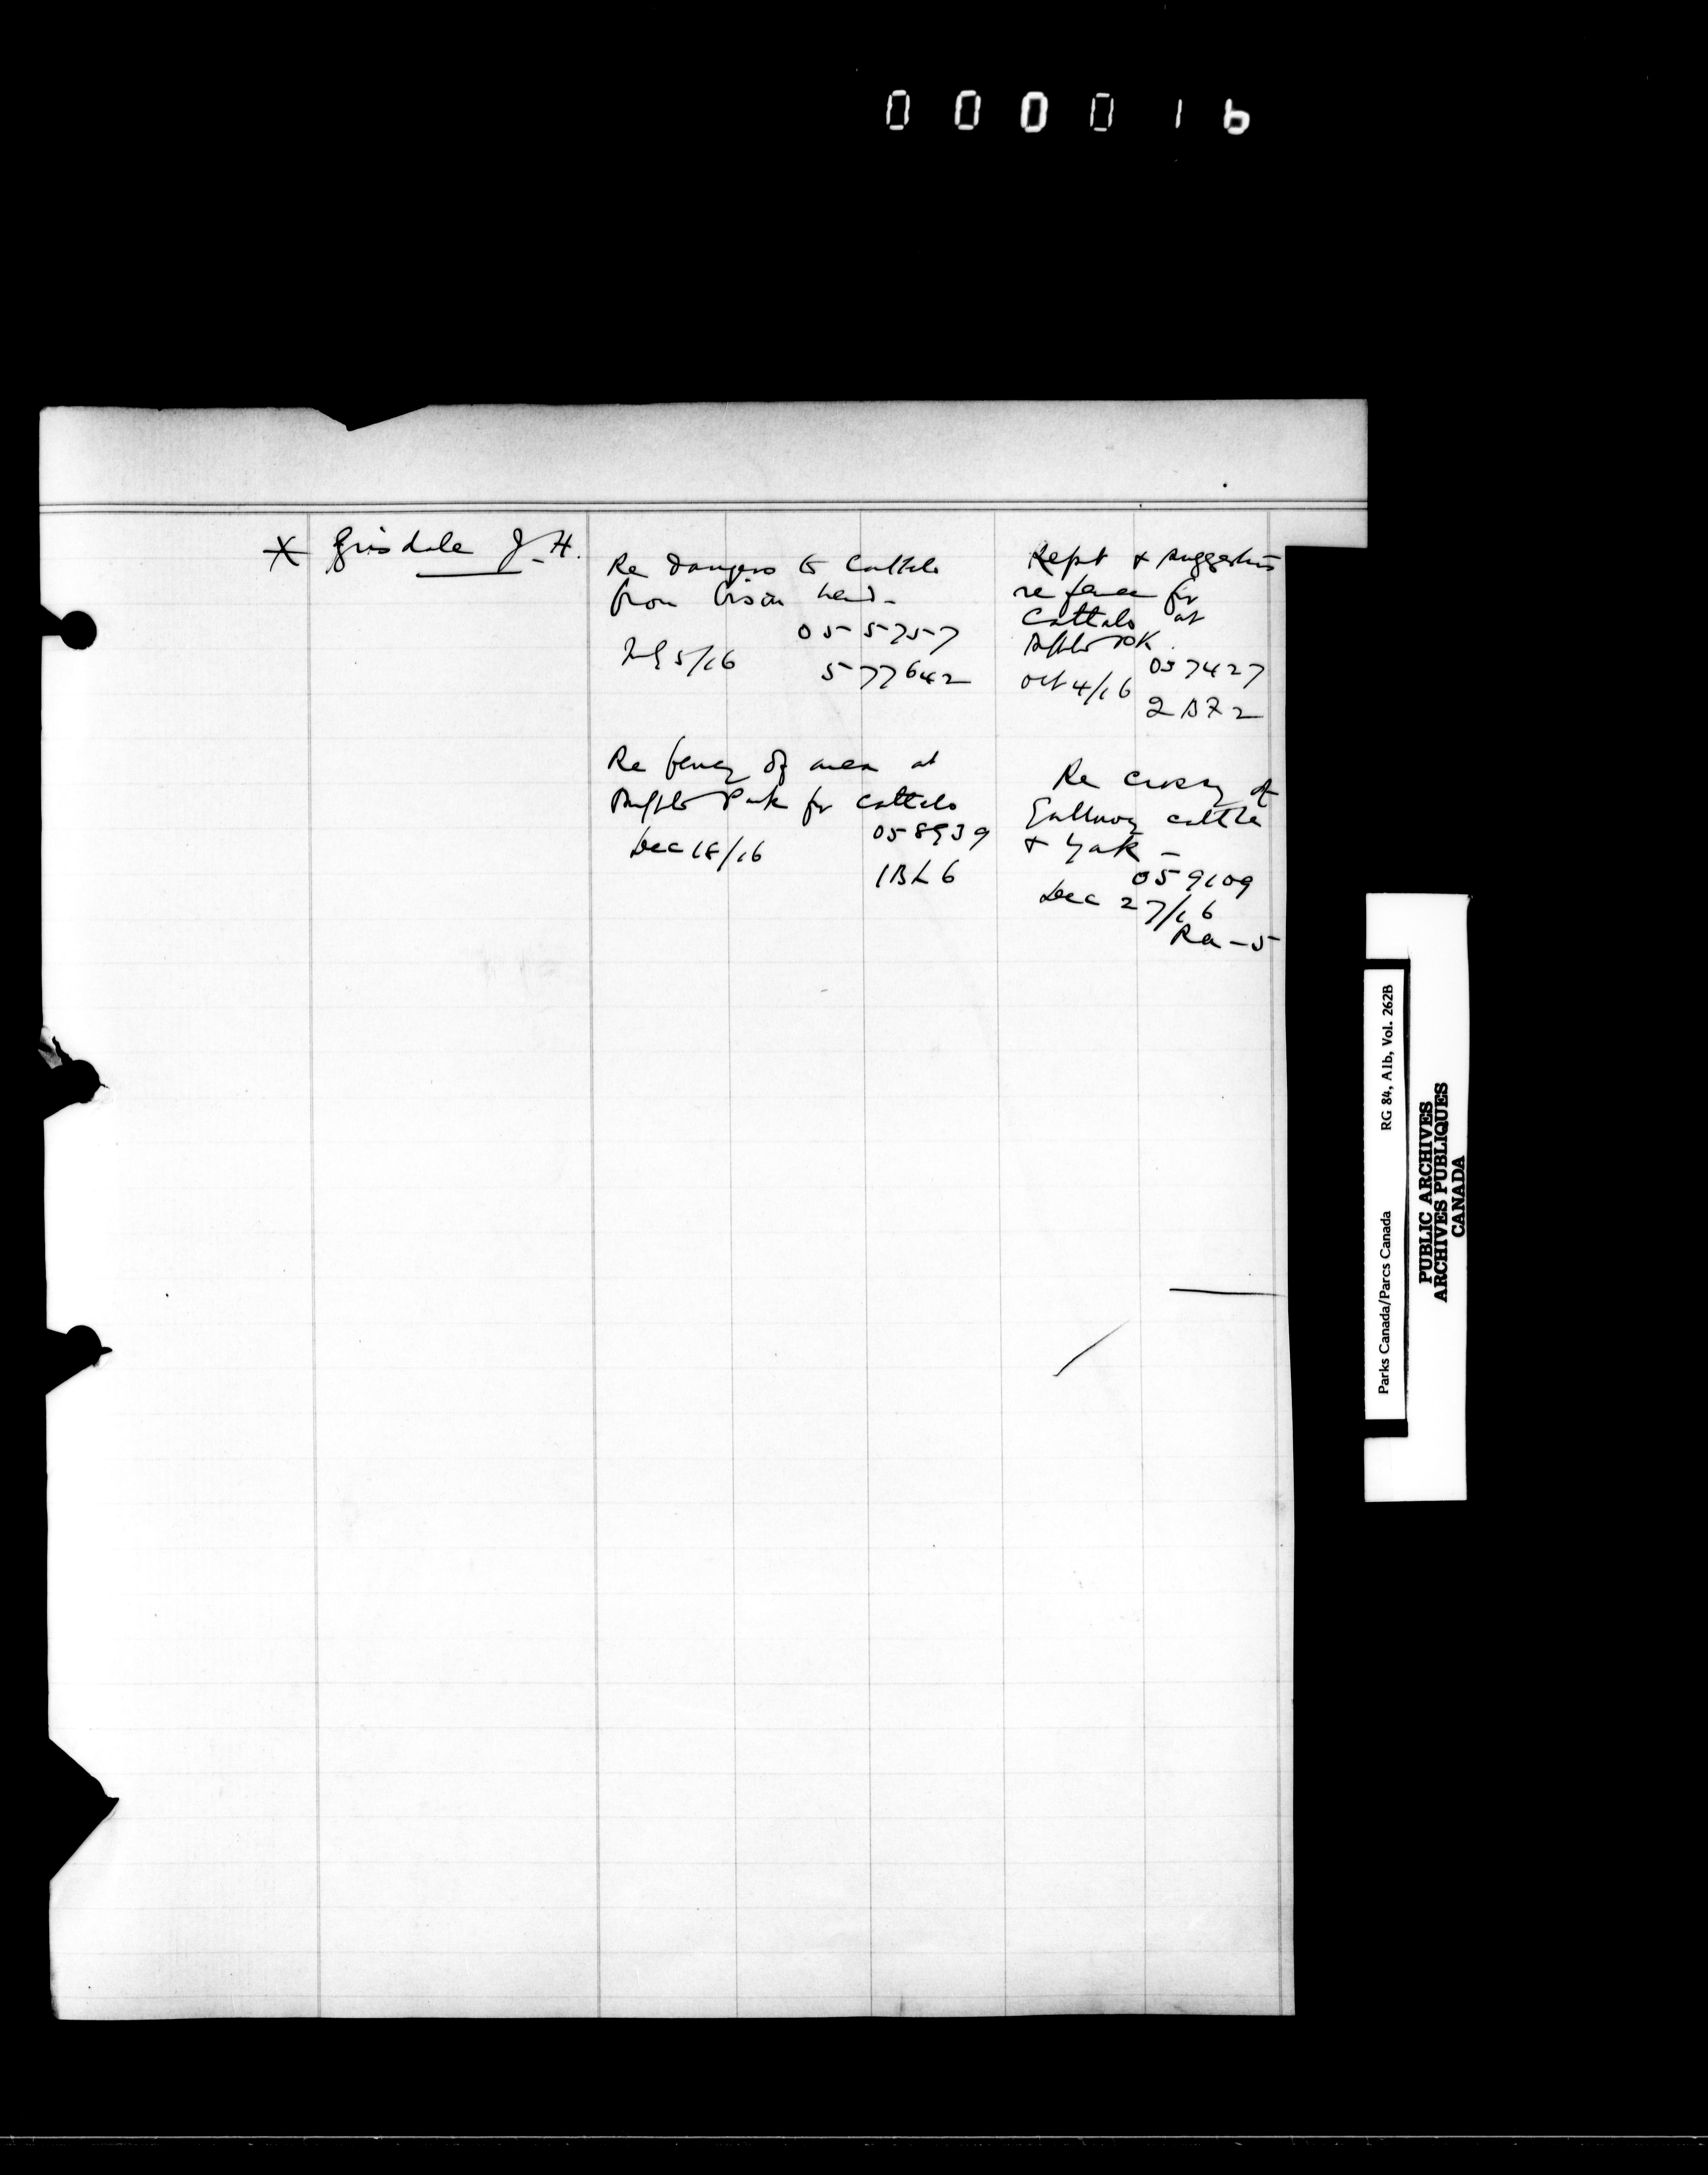 000016
X Grisdale J. H.
Re Dangers to Cattalo
from bison herd -
055757
July 5/16
577642
Rept & suggestions
re fence for
Cattalo at
Buffalo Pk.
057427
Oct 4/16
Re fencg of area at
Buffalo Park for Cattalo
058939
Dec 18/16
1BL6
Re crossg of
Galloway cattle
& Yak -
059109
Dec 27/16
Ra-5
Parks Canada/Parcs Canada RG 84, A1b, Vol. 262B
PUBLIC ARCHIVES
ARCHIVES PUBLIQUES
CANADA